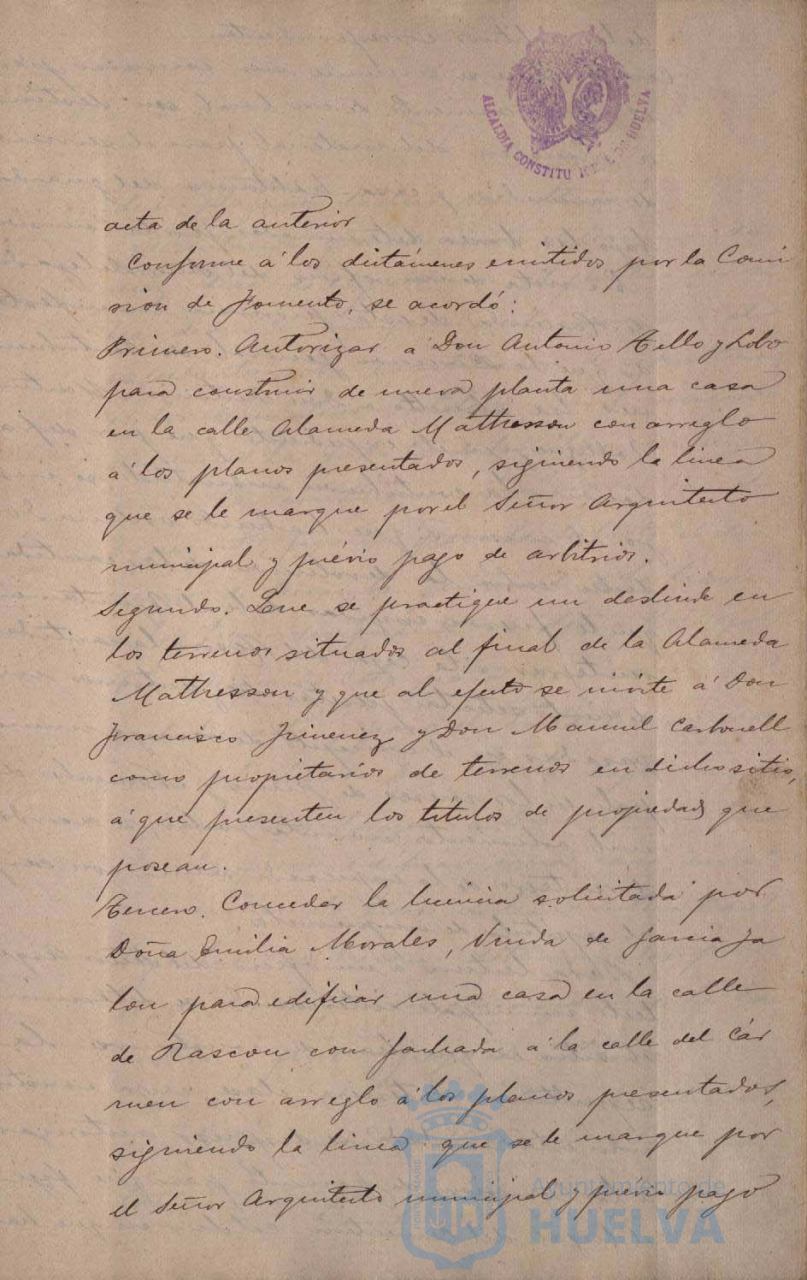 ALCALDIA CONSTITUCIONAL DE HUELVA
acta de la anterior
Conforme á los dictámenes emitidos por la Comi
sion de Fomento, se acordó:
Primero. Autorizar á Don Antonio Tello y Lobo
para construir de nueva planta una casa
en la calle Alameda Mathesson con arreglo
á los planos presentados, siguiendo la linea
que se le marque por el Señor Arquitecto
municipal y prévio pago de arbitrios.
Segundo. Que se practique un deslinde en
los terrenos situados al final de la Alameda
Mathesson y que al efecto se invite á Don
Francisco Jimenez y Don Manuel Carbonell
como propietarios de terrenos en dicho sitio,
á que presenten los títulos de propiedad que
posean.
Tercero. Conceder la licencia solicitada por
Doña Emilia Morales, Viuda de Garcia Ja
lon para edificar una casa en la calle
de Rascon con fachada á la calle del Cár
men con arreglo á los planos presentados,
siguiendo la linea que se le marque por
el Señor Arquitecto municipal y previo pago
Ayuntamiento de
HUELVA